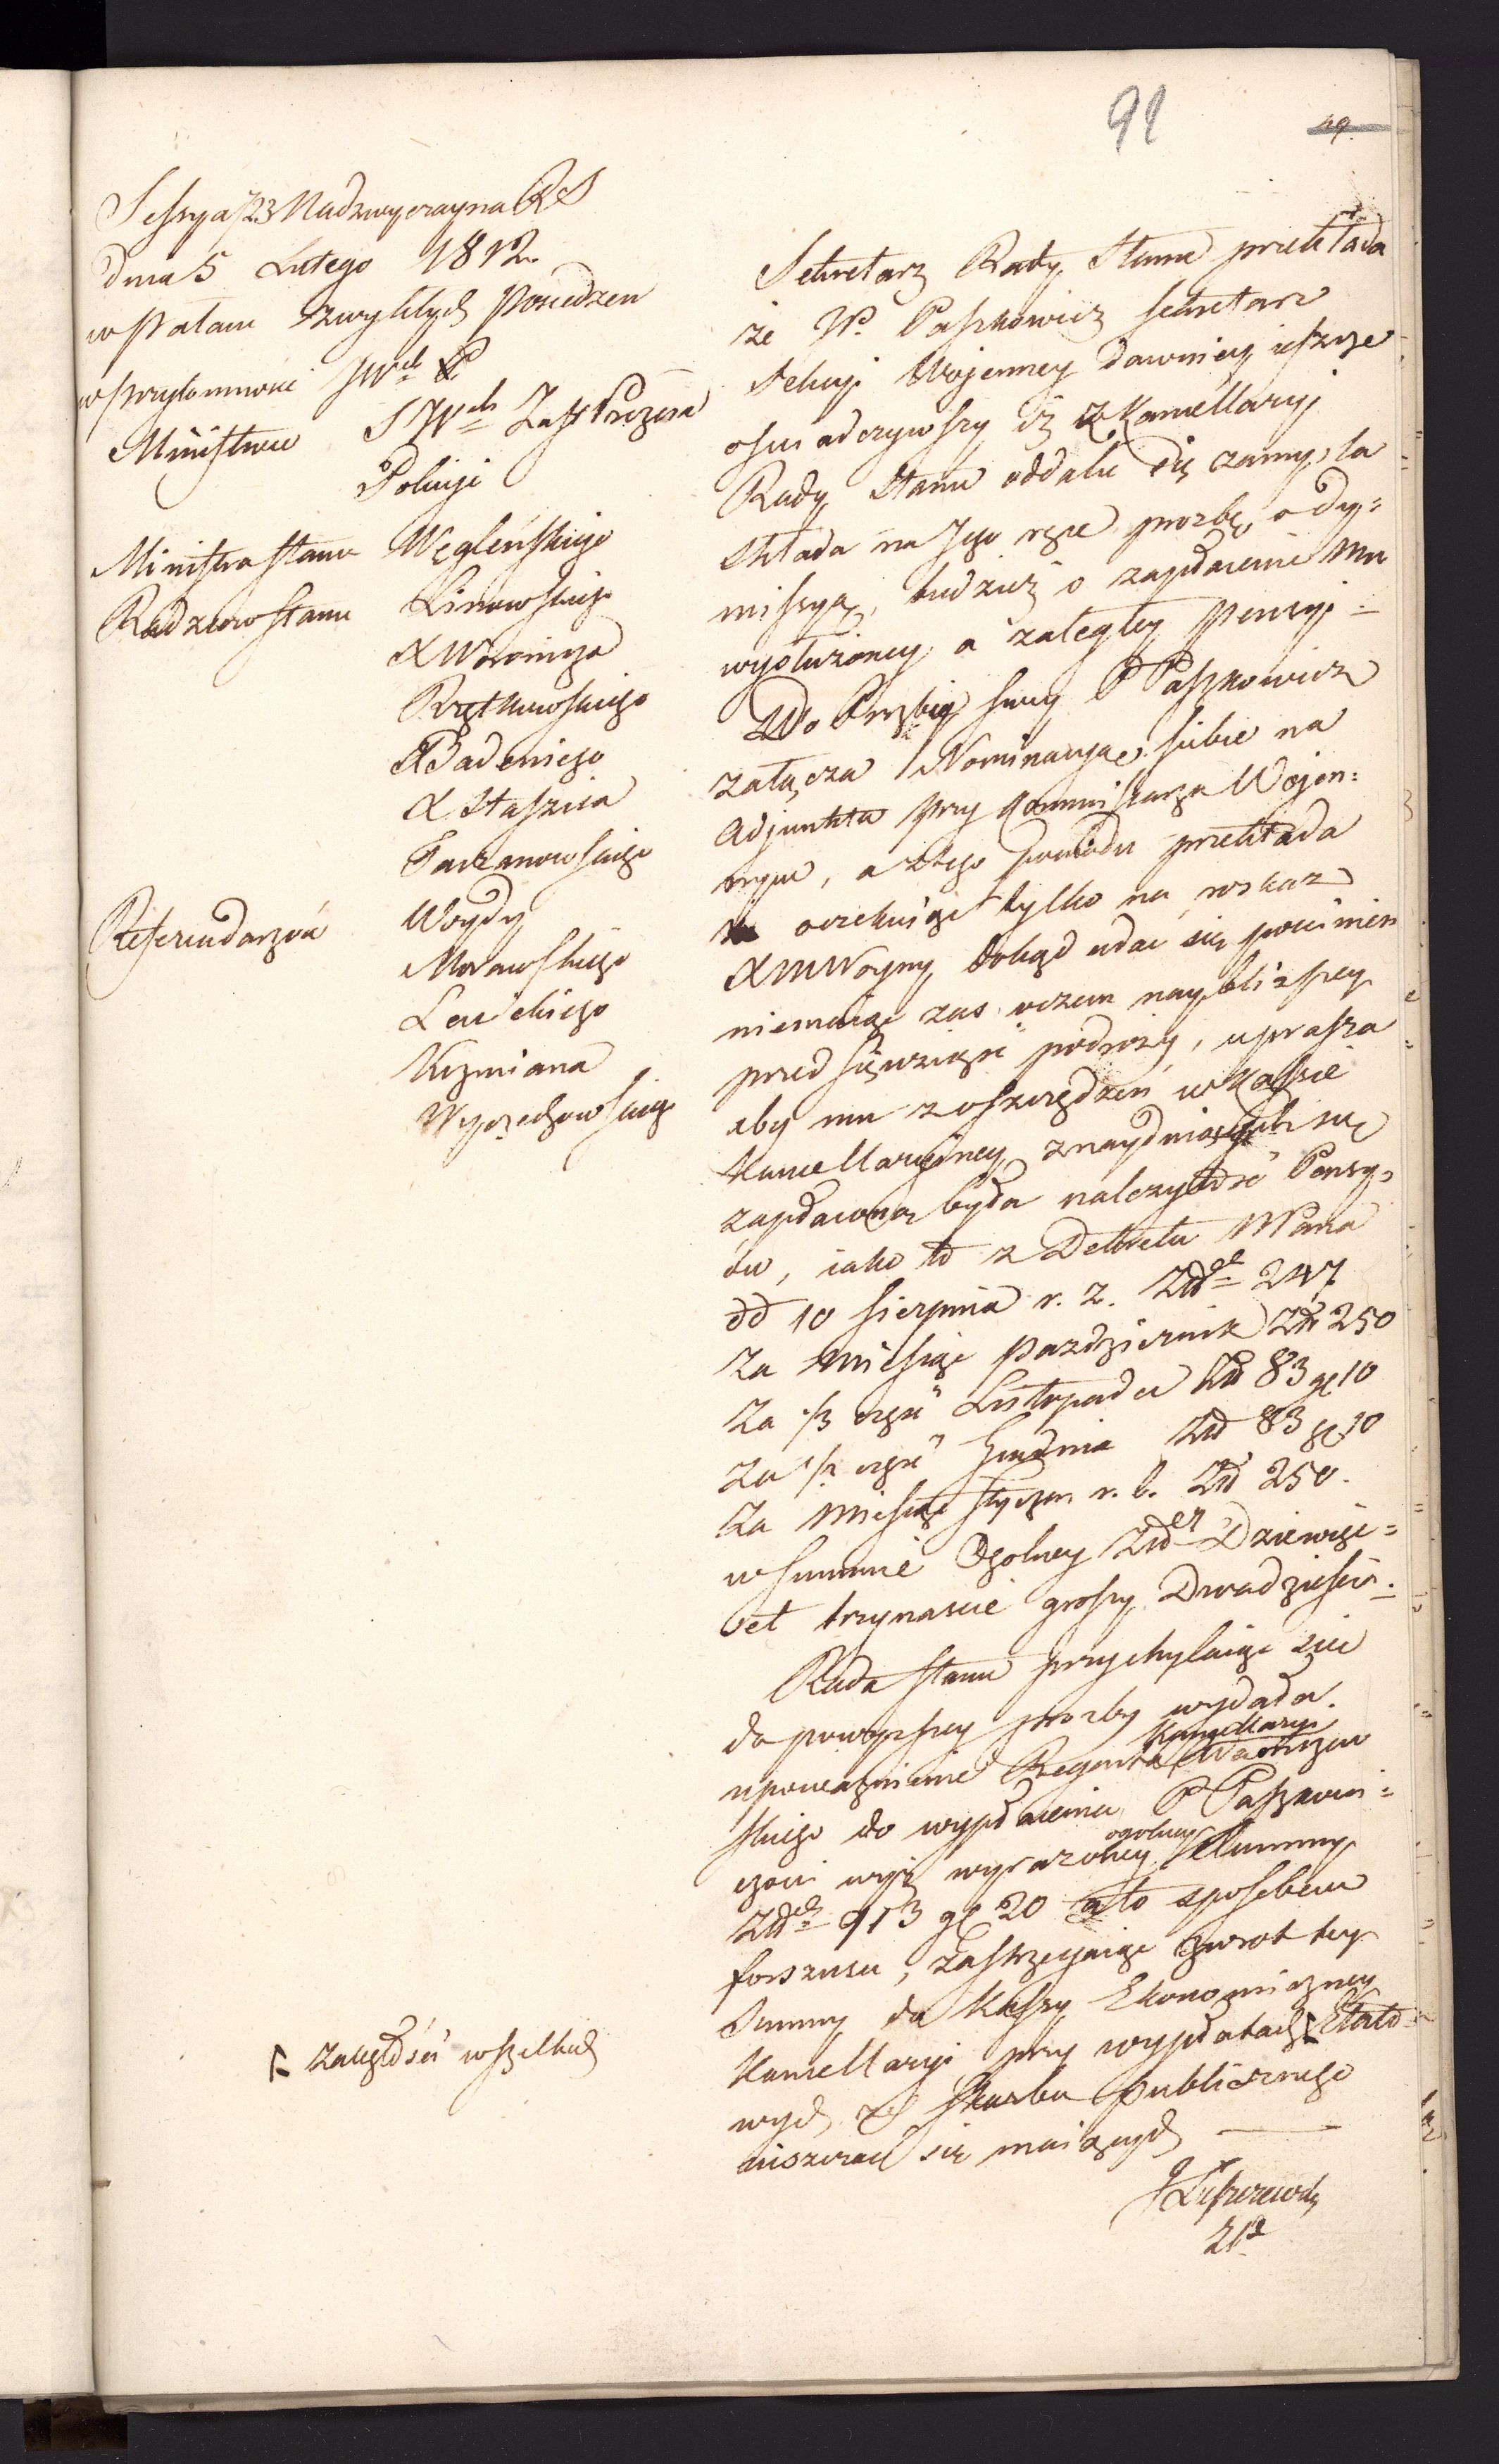 91
49.
Sessya 123 Nadzwyczayna RS
dnia 5 Lutego 1812
w Pałacu zwykłych Posiedzeń
w przytomności JWch
Ministrów JWch Zast Prezesa
Policyi
Ministra Stanu Węgleńskiego
Radzców Stanu Linowskiego
X Woronicza
Rzętkowskiego
Badeniego
X Staszica
Tarzanowskiego
Referendarzów Woydy
Morawskiego
Lewickiego
Kozmiana
Wyczechowskiego
Sekretarz Rady Stanu przekłada
że W. Paszkowicz sekretarz
Sekcyi Wojenney dawniey jeszcze
oświadczywszy iż z Kancellaryi
Rady Stanu oddalić się zamyśla
składa na Jego ręce prozbę o dy=
missyą, tudzież o zapłacenie Mu
wysłużoney a zaległey Pensyi =
Do Proźby swey P Paszkowicz
załącza Nominacyą siebie na
Adjunkta przy Kommissarzu Wojen=
nym, a z tego powodu przekłada
że oczekuiąc tylko na rozkaz
X M Woyny dokąd udać się powinien
niemaiąc zaś o czem naybliższey
przedsięwziąść podroży, uprasza
aby mu z oszczędzeń w Kassie
Kancellaryiney znayduiących się
zapłacona była należytość Pensy=
ów, iako to z Dekretu NPana
od 10 Sierpnia r. z. Złch 247
za Miesiąc Pazdziernik Zł 250
za 1/3 część Listopada Zł 83 gr 10
za 1/3 część Grudnia Zł 83 gr 10
za Miesiąc Styczeń r. b. Zł 250.
w Summie Ogolney Złch Dziewięć=
set trzynaście groszy Dwadzieścia.
Rada Stanu przychylaiąc się
do powyższey prozby wydała
upoważnienie Regenta Kancellaryi
skiego do wypłacenia P Paszkowi=
czowi wyż wyrażoney ogolney Summy
Złch 913 gr 20 a to sposobem
forszusu, zastrzegaiąc zwrot tey
Summy do Kassy Ekonomiczney
Kancellaryi przy wypłatach Etato=
wych z Skarbu Publicznego
uiszczać się maiących
zaległości wszelkich